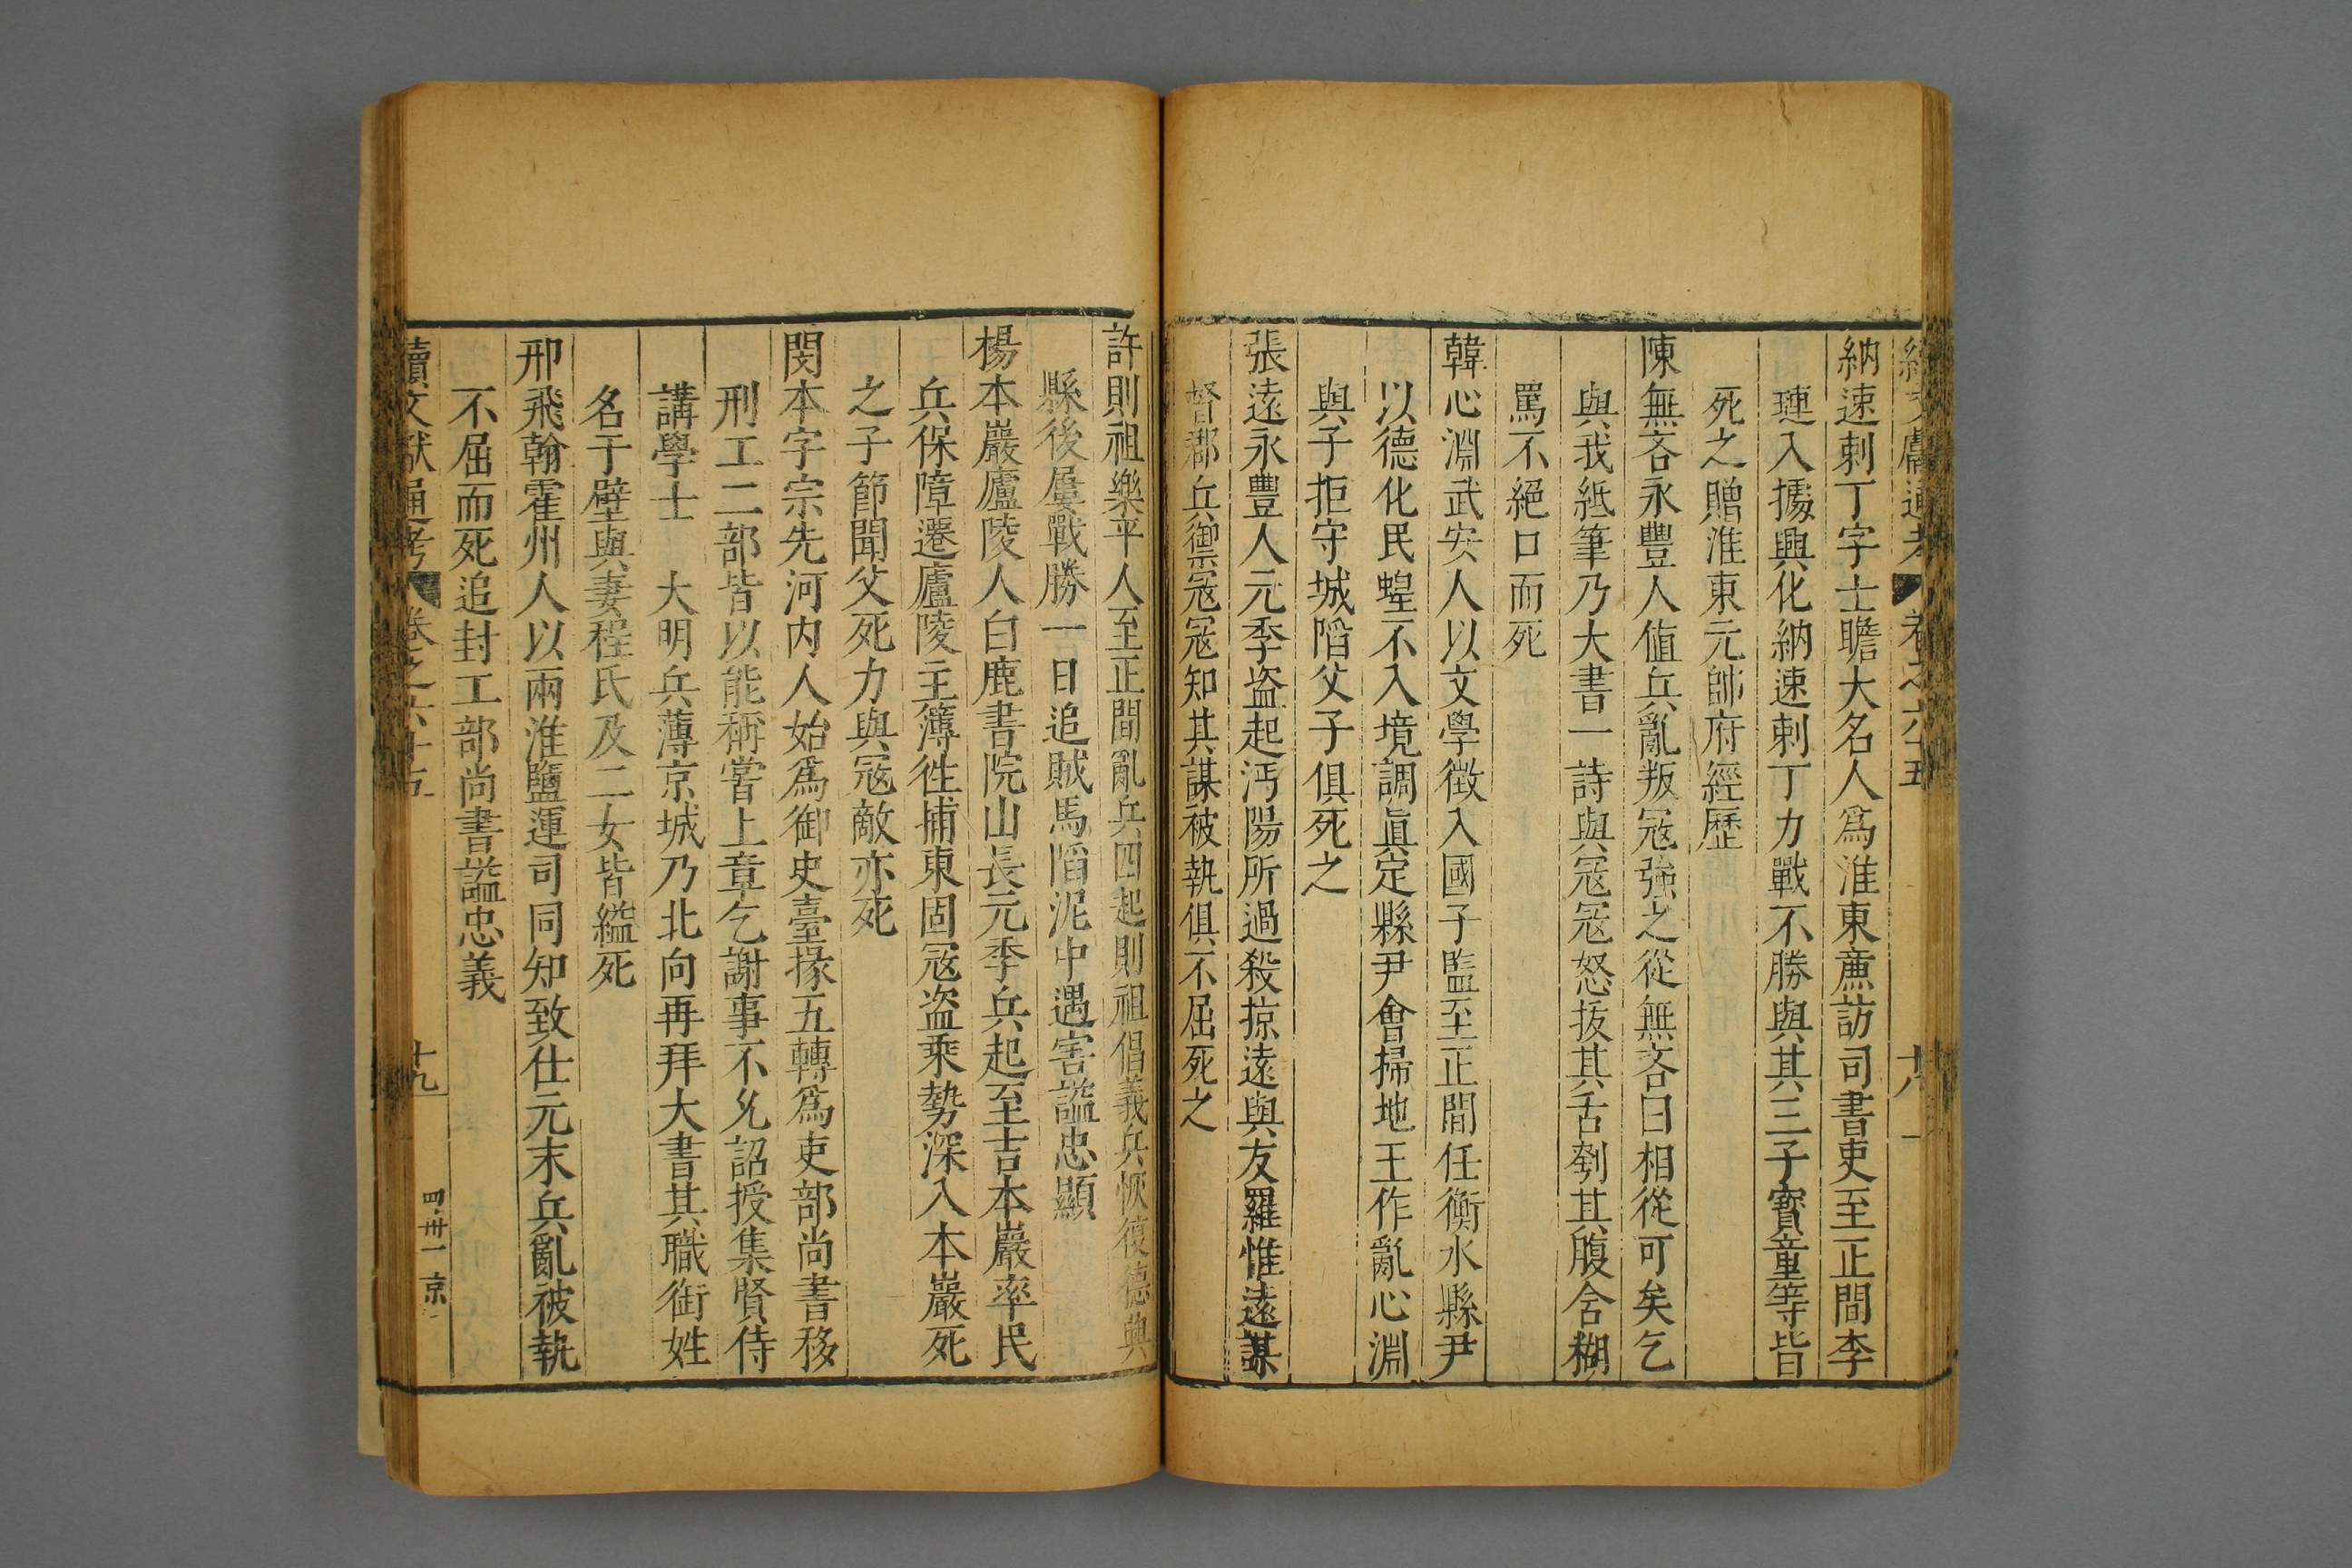 續文獻通考 卷之六十五 十八
納速剌丁字士瞻大名人爲淮東廉訪司書吏至正間李
璉入據興化納速剌丁力戰不勝與其三子寳童等皆
死之贈淮東元帥府經歷
陳無吝永豐人值兵亂叛冦強之從無吝曰相從可矣乞
與我紙筆乃大書一詩與冦冦怒抜其舌刳其腹含糊
罵不絕口而死
韓心淵武安人以文學徴入國子監至正間任衡水縣尹
以德化民蝗不入境調眞定縣尹會掃地王作亂心淵
與子拒守城陷父子俱死之
張遠永豐人元季盗起沔陽所過殺掠遠與友羅惟遠謀
督郡兵禦冦冦知其謀被執俱不屈死之
許則祖樂平人至正間亂兵四起則祖倡義兵恢復德興
縣後屢戰勝一日追賊馬陷泥中遇害謚忠顯
楊本巖廬陵人白鹿書院山長元季兵起至吉本巖率民
兵保障遷廬陵主簿徃捕東固冦盗乘勢深入本巖死
之子節聞父死力與冦敵亦死
閔本字宗先河内人始爲御史臺掾五轉爲吏部尚書移
刑工二部皆以能稱嘗上章乞謝事不允詔授集賢侍
講學士 大明兵薄京城乃北向再拜大書其職銜姓
名于壁與妻程氏及二女皆縊死
邢飛翰霍州人以兩淮鹽運司同知致仕元末兵亂被執
不屈而死追封工部尚書謚忠義
續文獻通考 卷之六十五 十九 四卅一 京